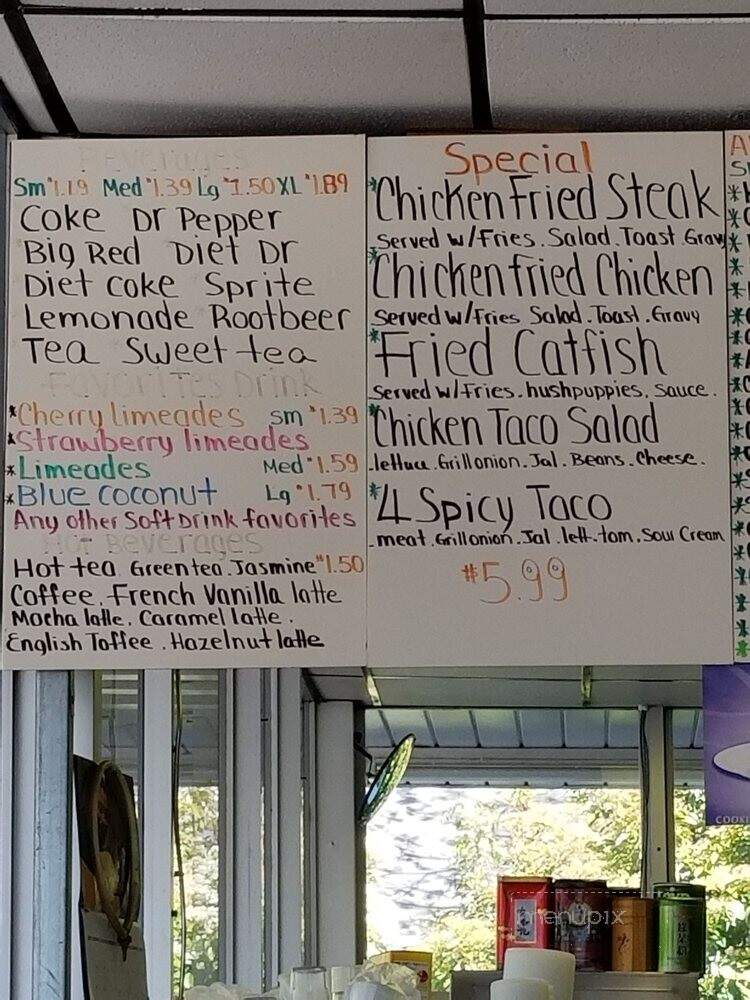 Beverages
Sm $1.19 Med $1.39 Lg $1.50 XL $1.89
Coke Dr Pepper
Big Red Diet Dr
Diet Coke Sprite
Lemonade Rootbeer
Tea Sweet tea
Favorites Drink
*Cherry limeades sm $1.39
*Strawberry limeades
*Limeades Med $1.59
*Blue coconut Lg $1.79
Any other Soft Drink favorites
Hot Beverages
Hot tea Green tea . Jasmine $1.50
Coffee . French Vanilla latte
Mocha latte . Caramel latte .
English Toffee . Hazelnut latte
Special
*Chicken Fried Steak
Served w/Fries . Salad . Toast . Gravy
*Chicken fried Chicken
Served w/Fries Salad . Toast . Gravy
*Fried Catfish
Served w/Fries . hushpuppies . Sauce .
*Chicken Taco Salad
.lettuce . Grill onion . Jal . Beans . Cheese .
*4 Spicy Taco
.meat . Grill onion . Jal . lett . tom . Sour Cream
$5.99
COOKI
menupix